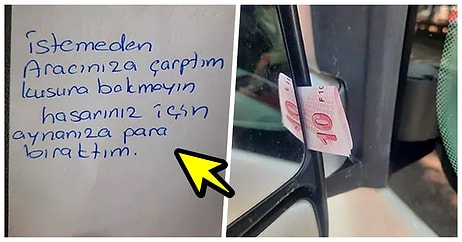 İstemeden
Aracınıza çarptım
kusura bakmayın
hasarınız için
aynanıza para
bıraktım.
10
10
F10